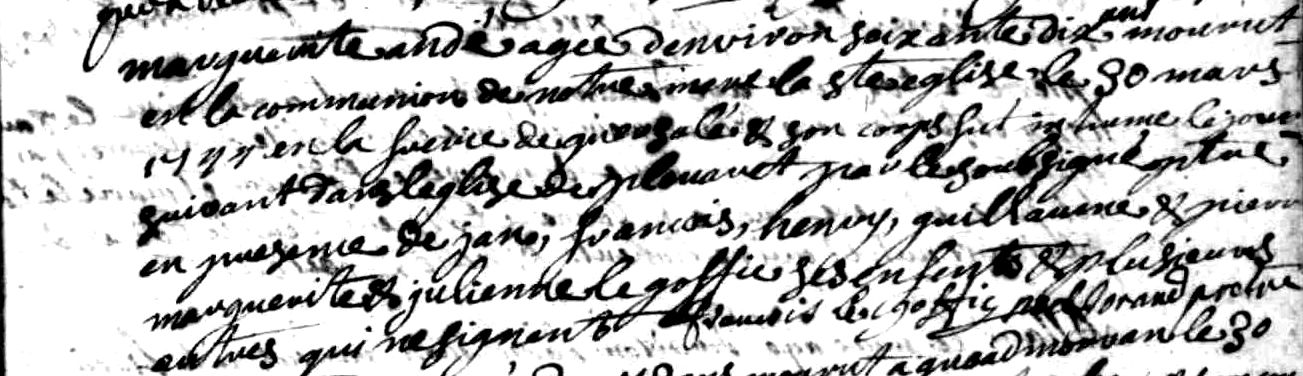 marguerite andé agée denviron soixante dix ans mourut
en la communion de notre mere la ste eglise le 30 mars
en la frerie de & son corps fut inhumé le jour
suivant dans leglise de plouaret par le soubsigné ptre
en presence de jan, francois, henry, guillaume & pierre
marguerite & julienne le goffic ses enfents & plusieurs
autres qui ne signent francois le goffic prebtre
mourut a le 30